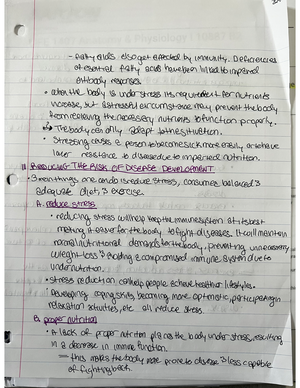 - fatty acids also get affected by immunity. Deficiencies
of essential fatty acids have been linked to impaired
antibody responses.
• when the body is under stress its requirement for nutrients
increase, but a stressful circumstance may prevent the body
from receiving the necessary nutrients to function properly.
↳ The body can only adapt to the situation.
• Stressing causes a person to become sick more easily, or have
lower resistance to disease due to impaired nutrition.
II REDUCING THE RISK OF DISEASE DEVELOPMENT
• Some things one can do is reduce stress, consume balanced &
adequate diet, & exercise.
A. reduce stress
• reducing stress will help keep the immune system at its best
making it easier for the body to fight diseases. It will maintain
normal nutritional demands for the body, preventing unnecessary
weight loss & avoiding a compromised immune system due to
undernutrition.
• stress reduction can help people achieve healthier lifestyles.
• Developing coping skills, becoming more optimistic, participating in
relaxation activities, etc. all reduce stress.
B. proper nutrition
• A lack of proper nutrition places the body under stress, resulting
in a decrease in immune function.
→ this makes the body more prone to disease & less capable
of fighting back.